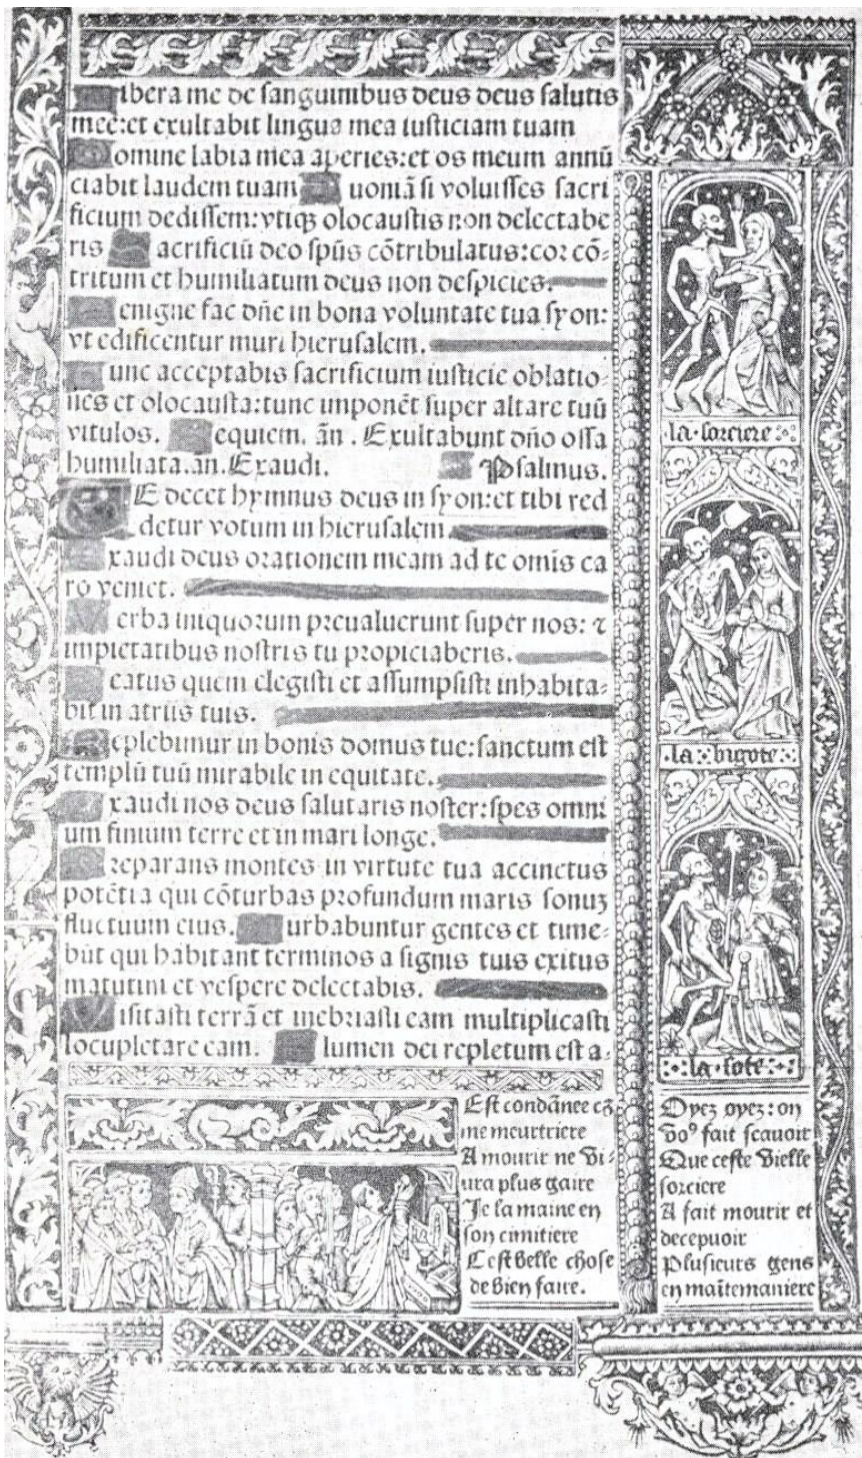 ibera me de sanguinibus deus deus salutis
mee:et exultabit lingua mea iusticiam tuam
omine labia mea aperies:et os meum annū
ciabit laudem tuam uoniā si voluisses sacri
ficium dedissem:vtiqȝ olocaustis non delectabe
ris acrificiū deo spūs cōtribulatus:cor cō-
tritum et humiliatum deus non despicies.
enigne fac dñe in bona voluntate tua syon:
vt edificentur muri hierusalem.
unc acceptabis sacrificium iusticie oblatio-
nes et olocausta:tunc imponēt super altare tuū
vitulos. equiem. añ. Exultabunt dño ossa
humiliata.an.Exaudi. Psalmus.
E decet hymnus deus in syon:et tibi red
detur votum in hierusalem.
xaudi deus orationem meam ad te omīs ca
ro veniet.
erba iniquorum preualuerunt super nos: ⁊
impietatibus nostris tu propiciaberis.
eatus quem elegisti et assumpsisti inhabita-
bit in atriis tuis.
eplebimur in bonis domus tue:sanctum est
templū tuū mirabile in equitate.
xaudi nos deus salutaris noster:spes omni
um finium terre et in mari longe.
reparans montes in virtute tua accinctus
potētia qui cōturbas profundum maris sonuȝ
fluctuum eius. urbabuntur gentes et time-
būt qui habitant terminos a signis tuis exitus
matutini et vespere delectabis.
isitasti terrā et inebriasti eam multiplicasti
locupletare eam. lumen dei repletum est a-
la sorciere
la bigote
la sote
Est condānee cō
me meurtriere
A mourir ne vi-
ura plus gaire
Je la maine en
son cimitiere
Cest belle chose
de bien faire.
Oyez oyez: on
voꝰ fait scauoir
Que ceste vielle
sorciere
A fait mourir et
decepuoir
Plusieurs gens
en maītemaniere